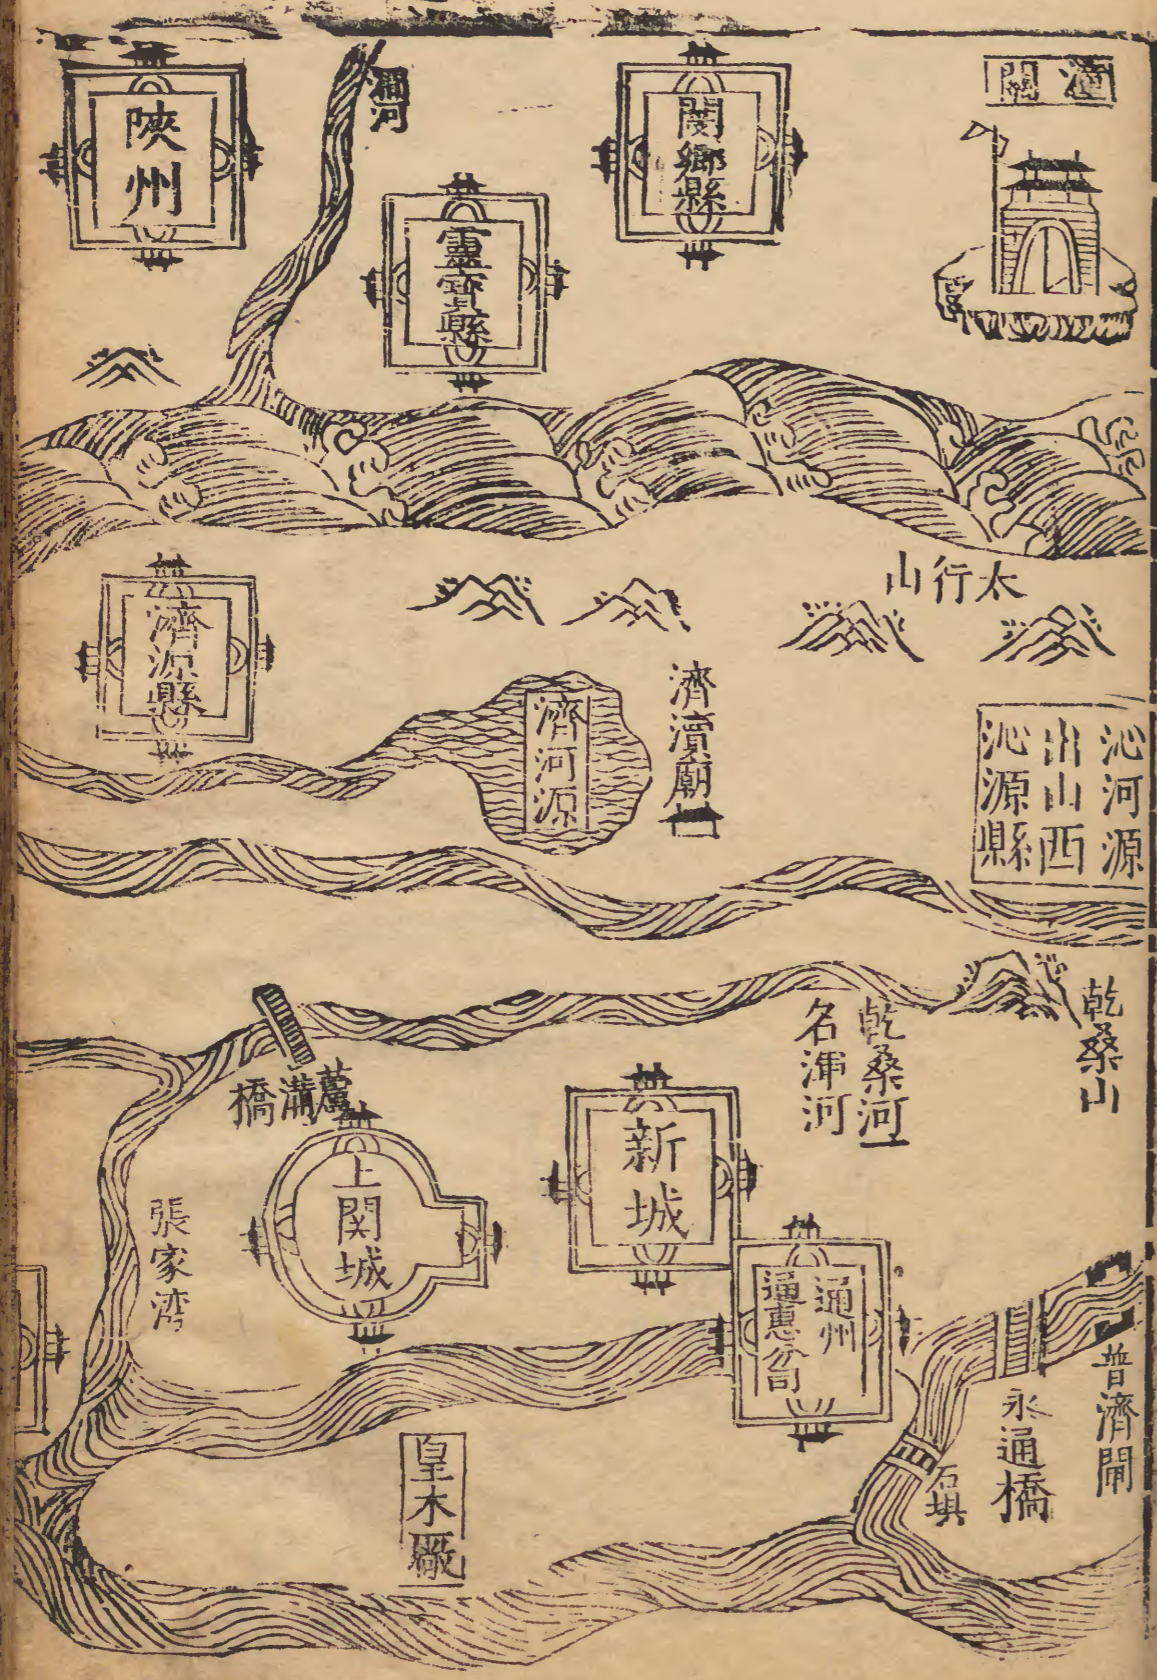 潼關
閿鄉縣
澗河
靈寳縣
陝州
太行山
沁河源
出山西
沁源縣
濟瀆廟
濟河源
濟源縣
乾桑山
乾桑河一
名渾河
蘆溝橋
新城
上関城
張家湾
通州
通惠
普濟閘
永通橋
石垻
皇木廠